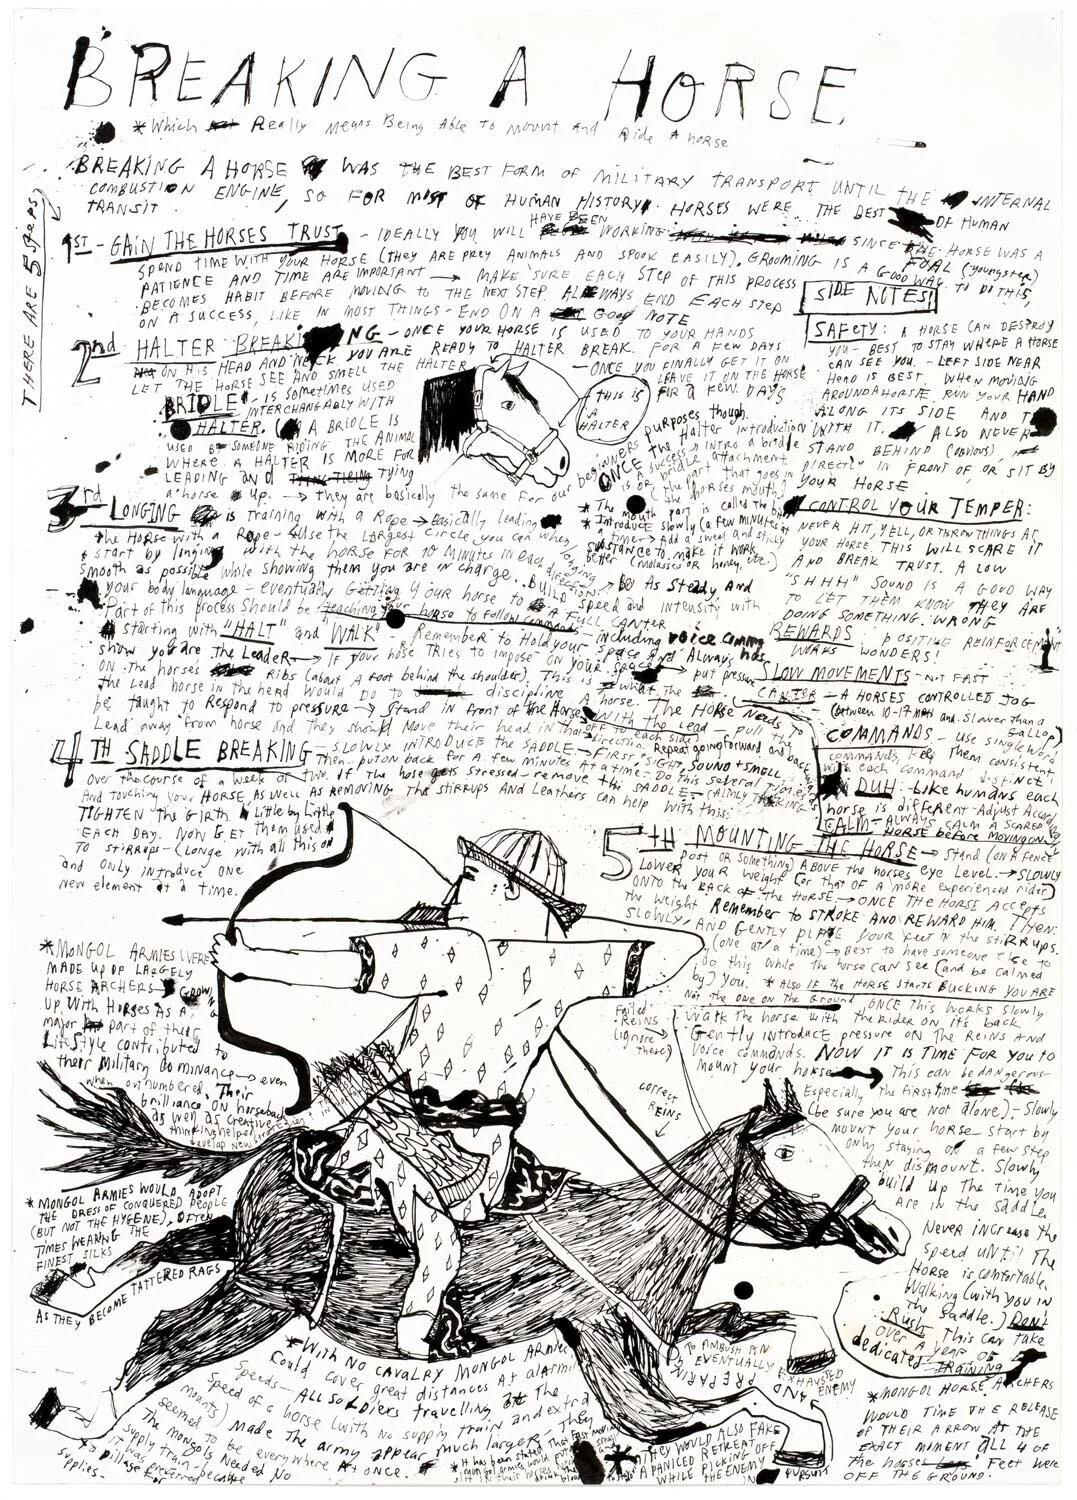 BREAKING A HORSE
*Which Really Means Being Able To Mount And Ride A horse
THERE ARE 5 Steps
BREAKING A HORSE WAS THE BEST FORM OF MILITARY TRANSPORT UNTIL THE INTERNAL
COMBUSTION ENGINE, SO FOR MOST OF HUMAN HISTORY HORSES WERE THE BEST OF HUMAN
TRANSIT.
1ST - GAIN THE HORSES TRUST - IDEALLY YOU WILL HAVE BEEN WORKING SINCE THE HORSE WAS A
FOAL (youngster)
SPEND TIME WITH YOUR HORSE (THEY ARE PREY ANIMALS AND SPOOK EASILY). GROOMING IS A GOOD WAY TO DO THIS,
PATIENCE AND TIME ARE IMPORTANT → MAKE SURE EACH STEP OF THIS PROCESS
BECOMES HABIT BEFORE MOVING TO THE NEXT STEP. ALWAYS END EACH STEP
ON A SUCCESS, LIKE IN MOST THINGS - END ON A Good NOTE
2nd HALTER BREAKING - ONCE YOUR HORSE IS USED TO YOUR HANDS
ON HIS HEAD AND NECK YOU ARE READY TO HALTER BREAK. FOR A FEW DAYS
LET THE HORSE SEE AND SMELL THE HALTER - ONCE YOU FINALLY GET IT ON
LEAVE IT ON THE HORSE
FOR A FEW DAYS
THIS IS
A
HALTER
BRIDLE - IS SOMETIMES USED
INTERCHANGABLY WITH
HALTER. A BRIDLE IS
USED BY SOMEONE RIDING THE ANIMAL
WHERE A HALTER IS MORE FOR
LEADING AND TYING
a horse up. → they are basically the same for our beginners purposes though.
ONCE the Halter introduction
is success → intro a bridle
or bridle attachment
(the part that goes in
the horses mouth)
* The mouth part is called the bit
* Introduce slowly (a few minutes at
time → Add a sweet and sticky
substance to make it work
better (molasses or honey, etc.)
3rd LONGING is Training with a Rope → Basically leading
the Horse with a Rope - Use the Largest Circle you can when longing
start by longing with the horse for 10 minutes in each direction
smooth as possible while showing them you are in charge... BUILD
your body language - eventually Getting your horse to a FULL CANTER
be As Steady And
Speed and Intensity with
Part of this process should be teaching your horse to follow commands - including voice comm
starting with "HALT" and "WALK" Remember to Hold your space and Always
show you are the Leader → If your hose TRIES to impose on your space → put pressure
ON the horses Ribs (about A foot behind the shoulder). This is what the
the Lead horse in the head would do to discipline a horse. The Horse Needs To
be taught to Respond to pressure → Stand in front of the Horse With the Lead - pull
Lead away from horse and they should Move their head in that direction. Repeat going forward and back
4TH SADDLE BREAKING - SLOWLY INTRODUCE the SADDLE → FIRST SIGHT, SOUND + SMELL
Then put on back for a few minutes at a time. Do this several Times
over the course of a week or two. If the hose gets stressed - remove the SADDLE
And touching your HORSE, AS WELL AS REMOVING the STIRRUPS And Leathers can help with this.
TIGHTEN the GIRTH Little by Little
EACH DAY. NOW GET Them used
TO STIRRUPS - (Longe with all this on
and only introduce one
new element at a time.
SIDE NOTES!
SAFETY: A HORSE CAN DESTROY
YOU - BEST TO STAY WHERE A HORSE
CAN SEE YOU. - LEFT SIDE NEAR
HEAD IS BEST. WHEN MOVING
AROUND A HORSE, RUN YOUR HAND
ALONG ITS SIDE AND
WITH IT. ALSO NEVER
STAND BEHIND (OBVIOUS),
DIRECTLY IN FRONT OF, OR SIT BY
YOUR HORSE
CONTROL YOUR TEMPER:
NEVER HIT, YELL, OR THROW THINGS AT
YOUR HORSE. THIS WILL SCARE IT
AND BREAK TRUST. A LOW
"SHHH" SOUND IS A GOOD WAY
TO LET THEM KNOW THEY ARE
DOING SOMETHING WRONG
REWARDS POSITIVE REINFORCEMENT
WORKS WONDERS!
SLOW MOVEMENTS - NOT FAST
CANTER - A HORSES CONTROLLED JOG
(between 10-17 MPH and slower than a
GALLOP)
COMMANDS - USE SINGLE WORD
COMMANDS, Keep Them consistent
each command distinct
DUH - Like humans each
horse is different - Adjust Accordingly
CALM - ALWAYS CALM A SCARED
HORSE before MOVING on
5TH MOUNTING THE HORSE → Stand (on A fence
post or something) ABOVE the horses eye Level → SLOWLY
LOWER your Weight (or that of a more experienced rider)
ONTO the BACK of the HORSE → ONCE THE HORSE Accepts
the weight Remember to STROKE AND REWARD HIM. THEN:
SLOWLY, AND GENTLY PLACE YOUR FEET IN the STIRRUPS.
(one at a time) → BEST to have someone else to
do this while the horse CAN SEE (and be calmed
by) you. * Also IF the HORSE STARTS BUCKING YOU ARE
Not the one on the Ground. ONCE This WORKS Slowly
Walk The horse with the Rider on it's back.
Gently introduce pressure on The Reins And
Voice commands. NOW IT IS TIME FOR YOU to
MOUNT YOUR HORSE → This can be dangerous
Especially the first time
(be sure you are not alone) - Slowly
mount your horse - start by
only staying on a few step
then dismount. Slowly
build up The time you
are in the saddle.
Never increase the
speed until The
Horse is comfortable.
Walking (with you in
the saddle.) Don't
Rush This can take
over a year of
dedicated TRAINING
Failed
REINS
(ignore
these)
correct
REINS
*MONGOL ARMIES WERE
MADE UP OF LARGELY
HORSE ARCHERS → Growing
up With Horses As A
major part of their
Lifestyle contributed to
their Military Dominance → even
when outnumbered. Their
brilliance ON horseback
as well as creative
thinking helped
develop new
* MONGOL ARMIES WOULD ADOPT
THE DRESS OF CONQUERED PEOPLE
(BUT NOT THE HYGENE), OFTEN
TIMES WEARING THE
FINEST SILKS
AS THEY BECOME TATTERED RAGS
*With NO CAVALRY MONGOL ARMIES
Could cover great distances At alarming
Speeds - ALL SOLDIERS travelling At The
Speed of a horse (with no supply train and extra
mounts) Made The army appear much larger - They
seemed to be everywhere At once.
The Mongols Needed No
supply train - because
it was preferred
to pillage for
supplies -
They WOULD ALSO FAKE
A PANICED RETREAT
WHILE PICKING OFF
THE ENEMY
IN
PURSUIT
PREPARING
TO AMBUSH AN
EVENTUALLY EXHAUSED
AND ENEMY
*MONGOL HORSE ARCHERS
WOULD TIME THE RELEASE
OF THEIR ARROW AT THE
EXACT MOMENT ALL 4 OF
The horses Feet were
OFF THE GROUND.